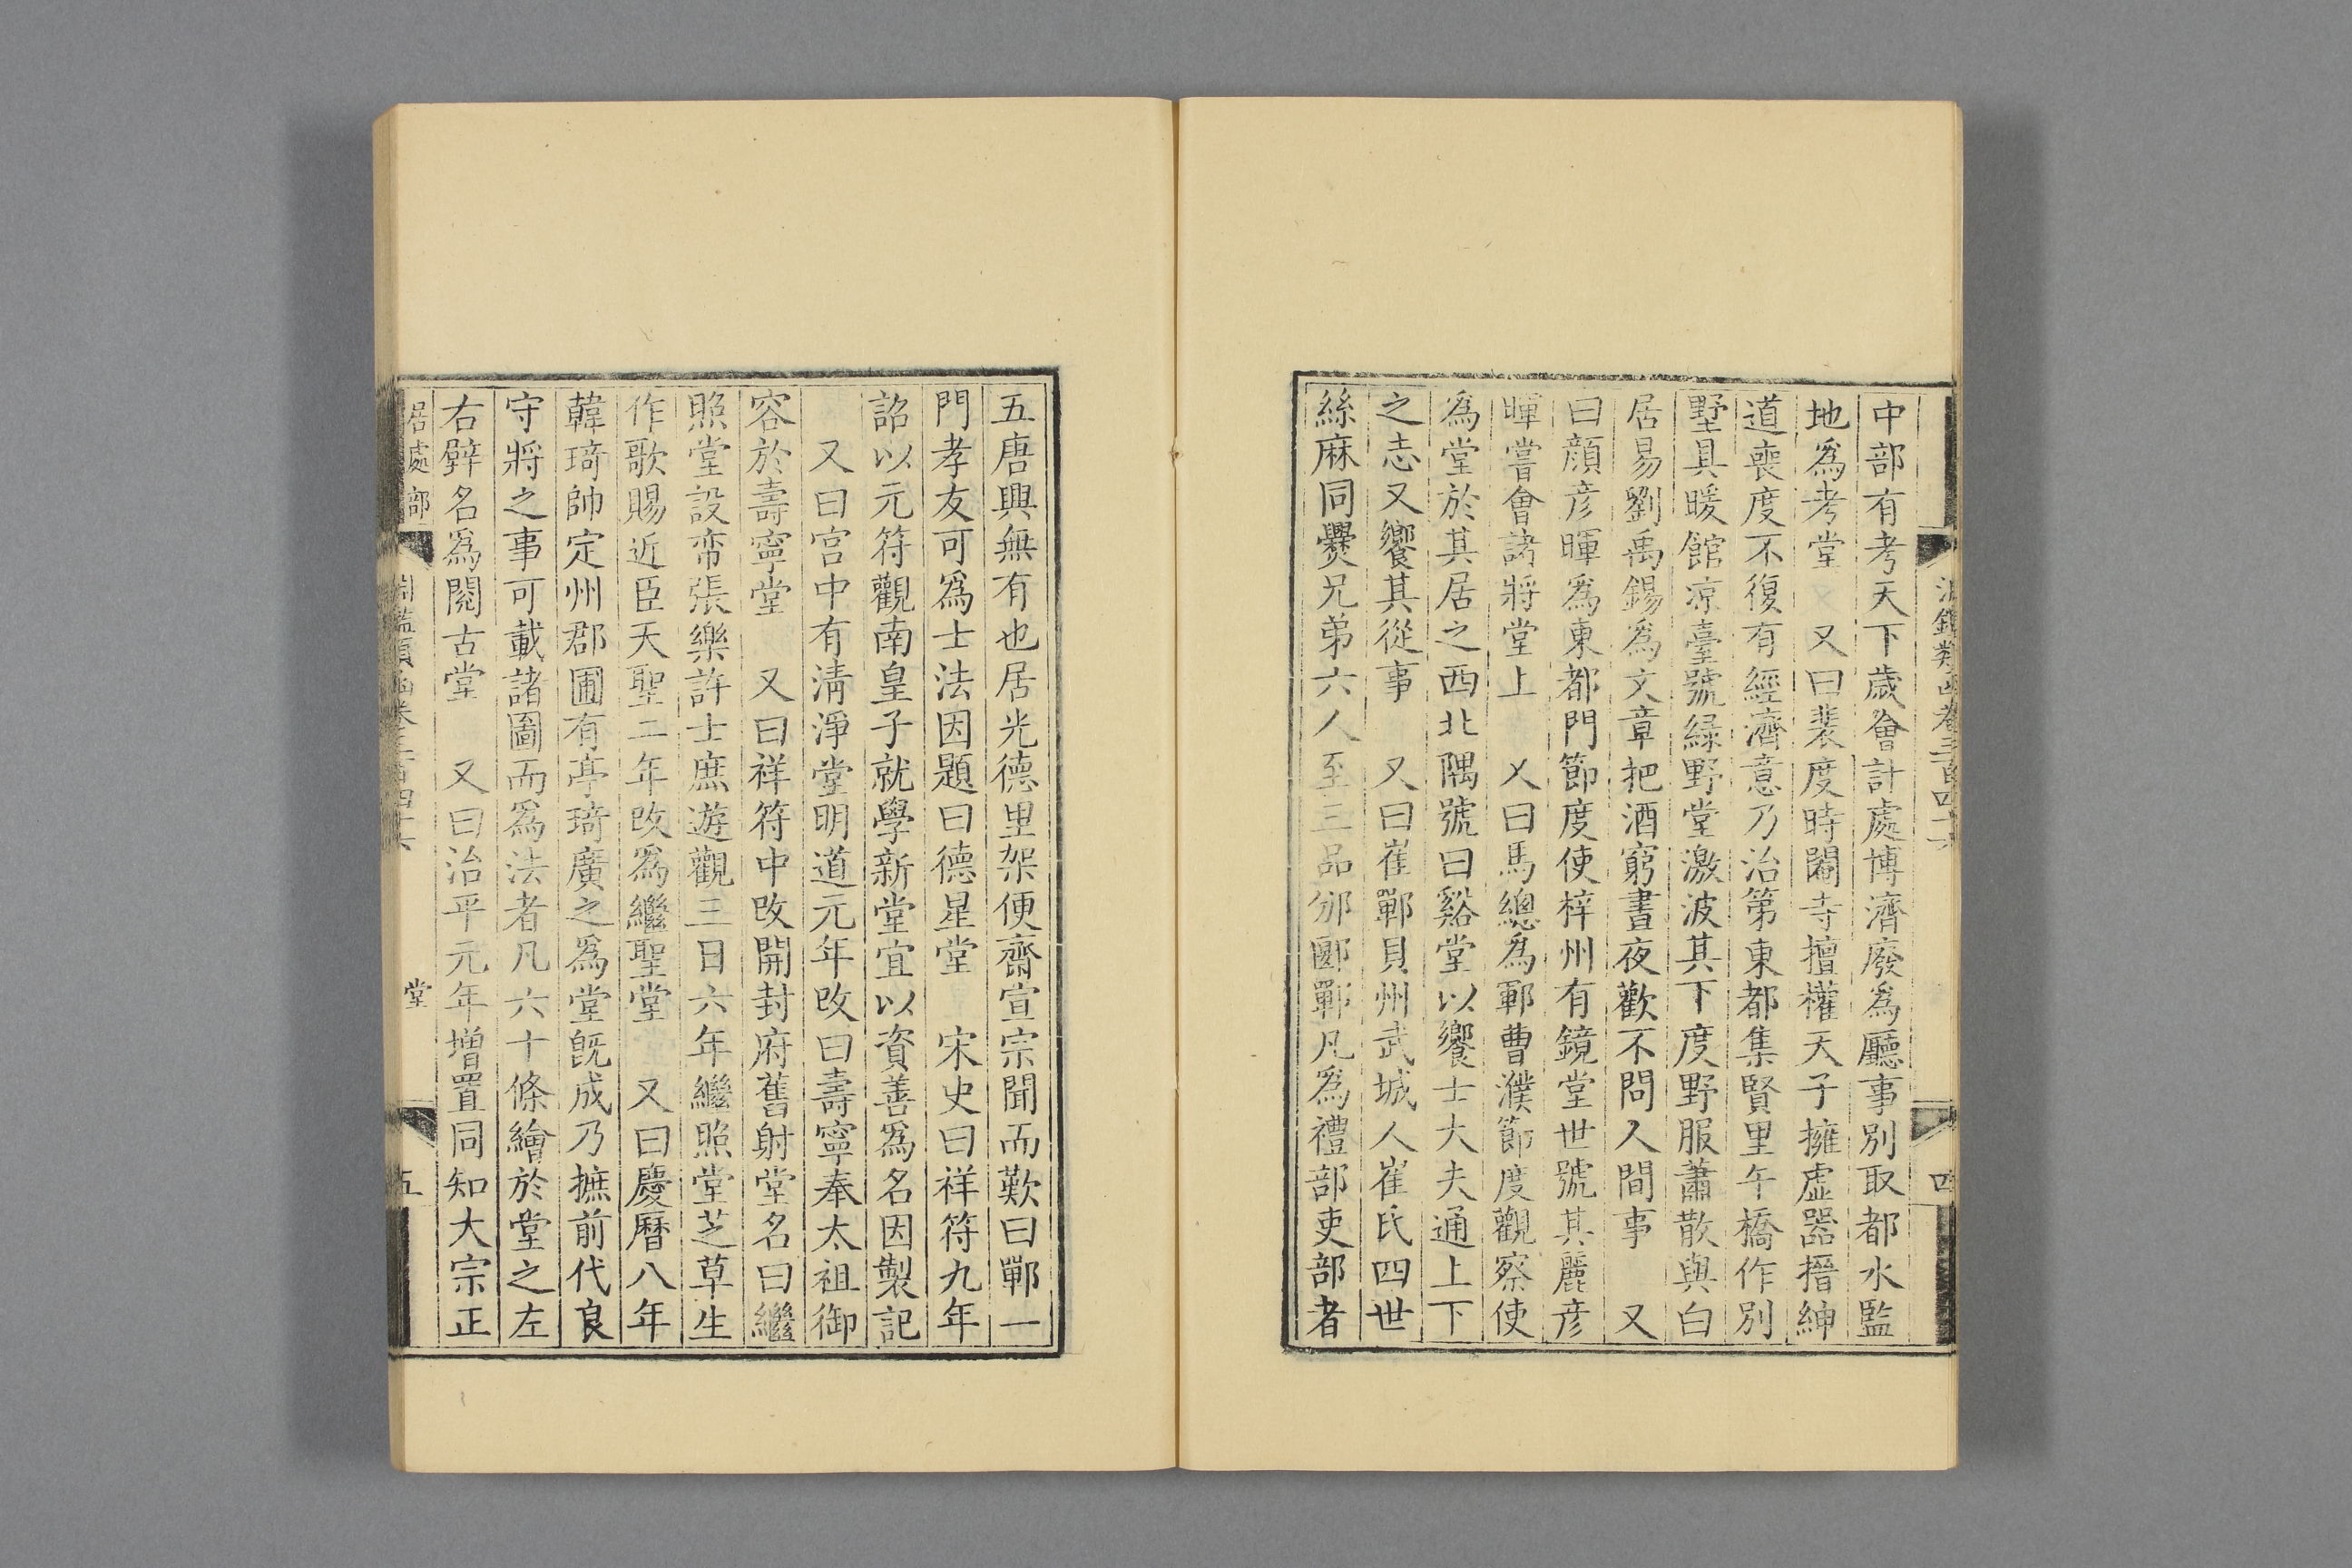 中部有考天下歲會計處博濟廢爲廳事別取都水監
地爲考堂 又曰裴度時閹寺擅權天子擁虛器搢紳
道喪度不復有經濟意乃治第東都集賢里午橋作別
墅具暖館凉臺號緑野堂激波其下度野服蕭散與白
居易劉禹錫爲文章把酒窮晝夜歡不問人間事 又
曰顔彦暉爲東都門節度使梓州有鏡堂世號其麗彦
暉嘗會諸將堂上 又曰馬總爲鄆曹濮節度觀察使
爲堂於其居之西北隅號曰谿堂以饗士大夫通上下
之志又饗其從事 又曰崔鄲貝州武城人崔氏四世
緦麻同㸑兄弟六人至三品邠郾鄲凡爲禮部吏部者
四
五唐興無有也居光德里架便齋宣宗聞而歎曰鄲一
門孝友可爲士法因題曰德星堂 宋史曰祥符九年
詔以元符觀南皇子就學新堂宜以資善爲名因製記
又曰宫中有清淨堂明道元年改曰壽寧奉太祖御
容於壽寧堂 又曰祥符中改開封府舊射堂名曰繼
照堂設帟張樂許士庶遊觀三日六年繼照堂芝草生
作歌賜近臣天聖二年改爲繼聖堂 又曰慶曆八年
韓琦帥定州郡圃有亭琦廣之爲堂既成乃摭前代良
守將之事可載諸圖而爲法者凡六十條繪於堂之左
右壁名爲閱古堂 又曰治平元年增置同知大宗正
居處部 淵鑑類函卷三百四十六 堂 五